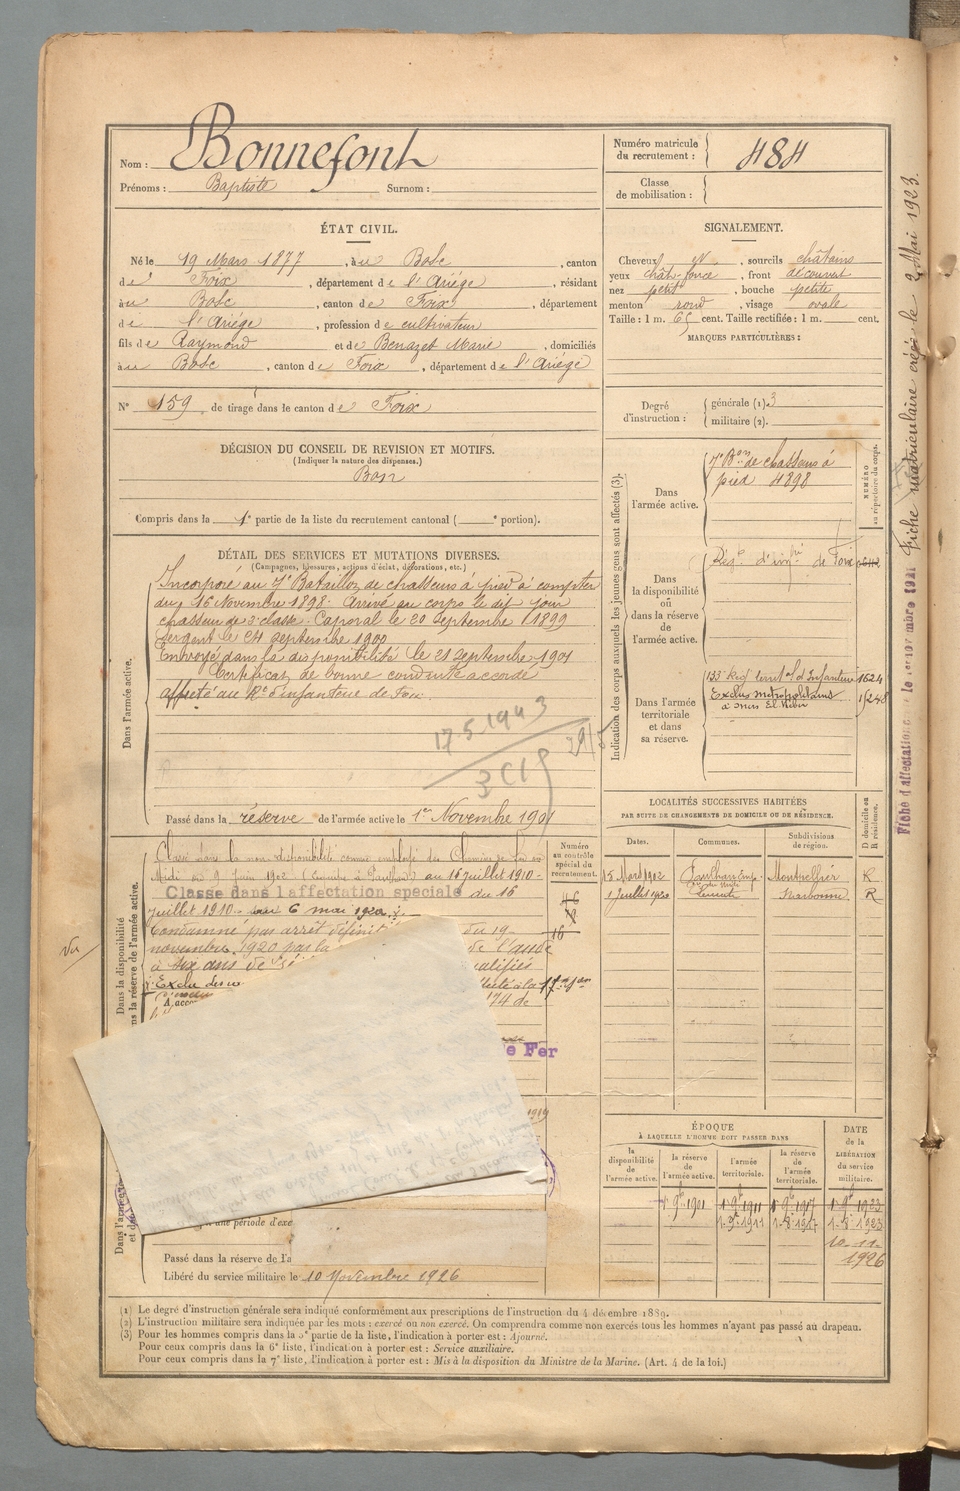 Nom : Bonnefont
Prénoms : Baptiste Surnom :
Numéro matricule du recrutement : 484
Classe de mobilisation :
ÉTAT CIVIL.
Né le 19 Mars 1877, à au Bosc, canton
de Foix, département de l'Ariége, résidant
à au Bosc, canton de Foix, département
de l'Ariége, profession de cultivateur
fils de Raymond et de Benazet Marie, domiciliés
à au Bosc, canton de Foix, département de l'Ariége
N° 159 de tirage dans le canton de Foix
SIGNALEMENT.
Cheveux N, sourcils châtains
yeux chât. foncé, front découvert
nez petit, bouche petite
menton rond, visage ovale
Taille : 1 m. 65 cent. Taille rectifiée : 1 m. cent.
MARQUES PARTICULIÈRES :
Degré d'instruction : générale (1). 3
militaire (2).
DÉCISION DU CONSEIL DE REVISION ET MOTIFS.
(Indiquer la nature des dispenses.)
Bon
Compris dans la 1e partie de la liste du recrutement cantonal ( e portion).
DÉTAIL DES SERVICES ET MUTATIONS DIVERSES.
(Campagnes, blessures, actions d'éclat, décorations, etc.)
Dans l'armée active.
Incorporé au 7e Bataillon de chasseurs à pied à compter
du 16 Novembre 1898. Arrivé au corps le dit jour
chasseur de 2e classe. Caporal le 20 septembre 1899
Sergent le 24 septembre 1900
Envoyé dans la disponibilité le 21 septembre 1901
Certificat de bonne conduite accordé
affecté au Rt d'infanterie de Foix.
17.5.1943
Passé dans la réserve de l'armée active le 1er Novembre 1901
Indication des corps auxquels les jeunes gens sont affectés (3).
NUMÉRO au répertoire du corps.
Dans l'armée active.
7e Bon de chasseurs à
pied 4898
Dans la disponibilité ou dans la réserve de l'armée active.
Régt d'infie de Foix
Dans l'armée territoriale et dans sa réserve.
133e Régt territal d'Infanterie 1624
Exclus métropolitains
à Mers El Kébir
LOCALITÉS SUCCESSIVES HABITÉES
PAR SUITE DE CHANGEMENTS DE DOMICILE OU DE RÉSIDENCE.
Dates. Communes. Subdivisions de région. D domicile ou R résidence.
15 Mars 1902 Montpellier R
1 Juillet 1920 Leucate Narbonne R
Dans la disponibilité
ans la réserve de l'armée active.
Numéro au contrôle spécial du recrutement.
Classé dans la non-disponibilité comme employé des Chemins de fer du
Midi du 9 Juin 1902 au 16 juillet 1910-
Classé dans l'affectation spéciale du 16
juillet 1910 - au 6 mai 1920
Condamné par arrêt définitif du 19
novembre 1920 par la de l'aude
à six ans de ualifiés
Exclu des
174 de
e Fer
Vu
ÉPOQUE
À LAQUELLE L'HOMME DOIT PASSER DANS
la disponibilité de l'armée active. la réserve de l'armée active. l'armée territoriale. la réserve de l'armée territoriale. DATE de la LIBÉRATION du service militaire.
1. 9b 1901 1. 9b 1911 1. 9b 1917 1. 9b 1923
10-11-
1926
une période d'exe
Passé dans la réserve de l'a
Libéré du service militaire le 10 Novembre 1926
Fiche matriculaire créée le 2 Mai 1923.
(1) Le degré d'instruction générale sera indiqué conformément aux prescriptions de l'instruction du 4 décembre 1889.
(2) L'instruction militaire sera indiquée par les mots : exercé ou non exercé. On comprendra comme non exercés tous les hommes n'ayant pas passé au drapeau.
(3) Pour les hommes compris dans la 5e partie de la liste, l'indication à porter est : Ajourné.
Pour ceux compris dans la 6e liste, l'indication à porter est : Service auxiliaire.
Pour ceux compris dans la 7e liste, l'indication à porter est : Mis à la disposition du Ministre de la Marine. (Art. 4 de la loi.)